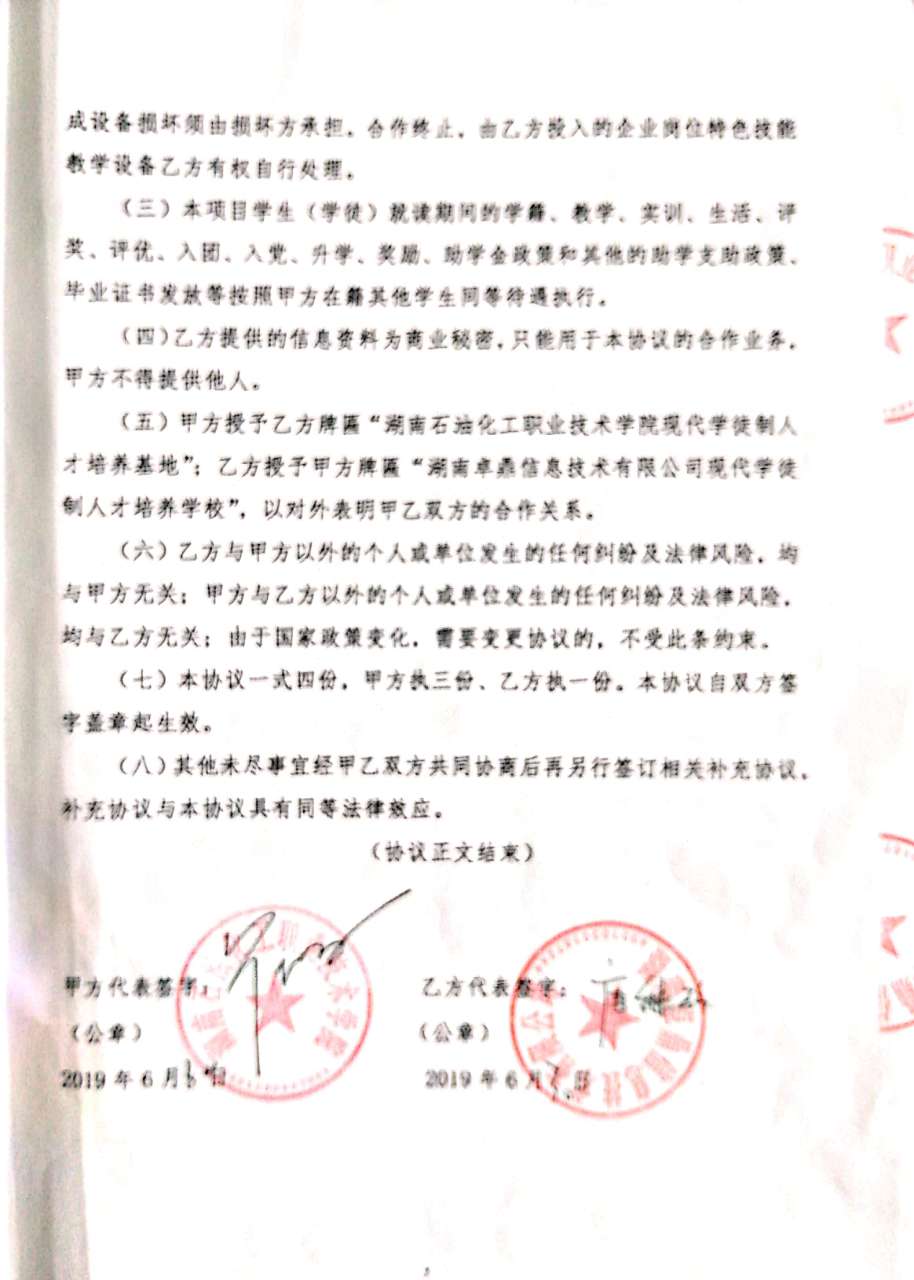 成设备损坏须由损坏方承担。合作终止，由乙方投入的企业岗位特色技能
教学设备乙方有权自行处理。
（三）本项目学生（学徒）就读期间的学籍、教学、实训、生活、评
奖、评优、入团、入党、升学、奖励、助学金政策和其他的助学支助政策、
毕业证书发放等按照甲方在籍其他学生同等待遇执行。
（四）乙方提供的信息资料为商业秘密，只能用于本协议的合作业务，
甲方不得提供他人。
（五）甲方授予乙方牌匾“湖南石油化工职业技术学院现代学徒制人
才培养基地”；乙方授予甲方牌匾“湖南卓鼎信息技术有限公司现代学徒
制人才培养学校”，以对外表明甲乙双方的合作关系。
（六）乙方与甲方以外的个人或单位发生的任何纠纷及法律风险，均
与甲方无关；甲方与乙方以外的个人或单位发生的任何纠纷及法律风险，
均与乙方无关；由于国家政策变化，需要变更协议的，不受此条约束。
（七）本协议一式四份，甲方执三份、乙方执一份。本协议自双方签
字盖章起生效。
（八）其他未尽事宜经甲乙双方共同协商后再另行签订相关补充协议，
补充协议与本协议具有同等法律效应。
（协议正文结束）
甲方代表签字：
乙方代表签字：
（公章）
（公章）
2019 年 6 月 日
2019 年 6 月 日